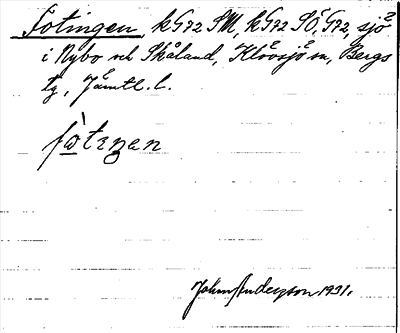 Fotingen, k G72 SM, k G72 SÖ, G72, sjö
i Nybo och Skåland, Klövsjö sn, Bergs
tg, Jämtl. l.
fò̱tıŋen
John Anderzon 1931.